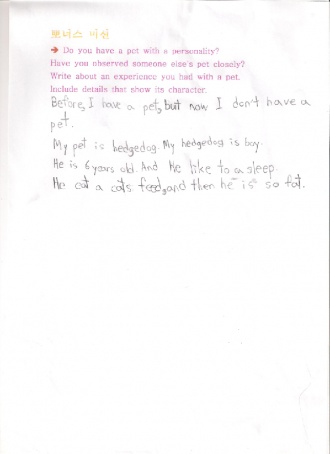 보너스 미션
➔ Do you have a pet with a personality?
Have you observed someone else's pet closely?
Write about an experience you had with a pet.
Include details that show its character.
Before, I have a pet, but now I don't have a
pet.
My pet is hedgedog. My hedgedog is boy.
He is 6 years old. And He like to a sleep.
He eat a cats feed, and then he is so fat.